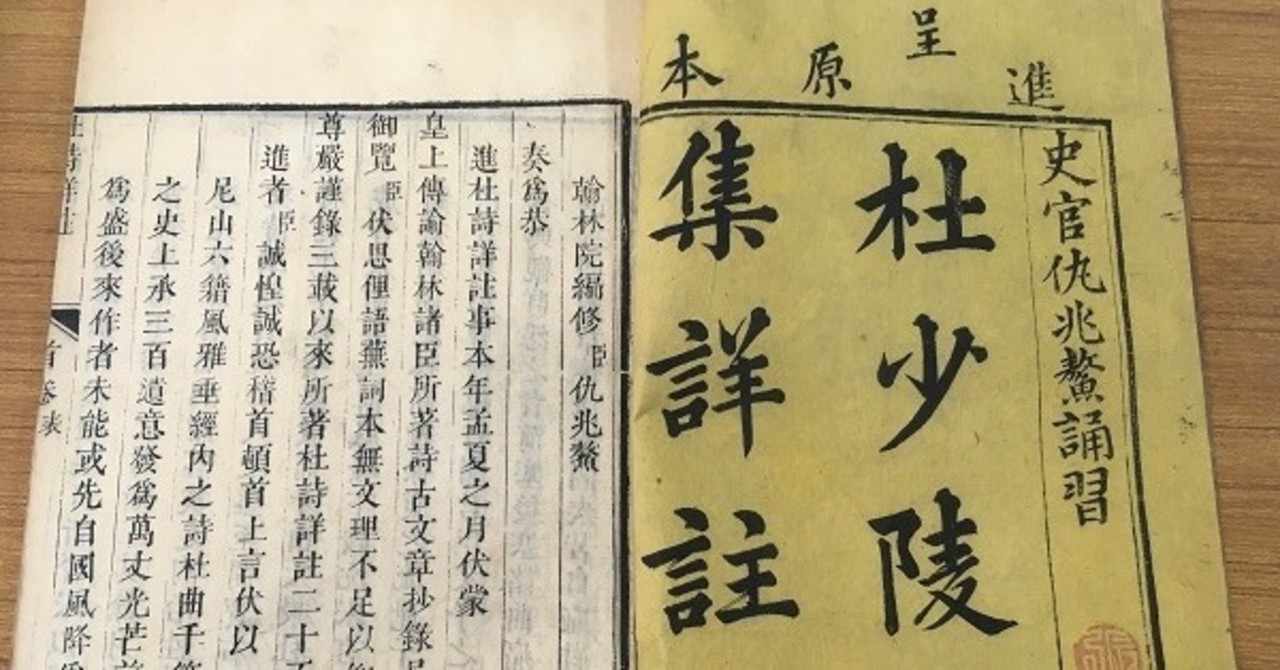 進呈原本
史官仇兆鰲誦習
杜少陵
集詳註
翰林院編修臣仇兆鰲
奏爲恭
進杜詩詳註事本年孟夏之月伏蒙
皇上傳諭翰林諸臣所著詩古文章抄錄
御覽臣伏思俚語蕪詞本無文理不足以
尊嚴謹錄三載以來所著杜詩詳註二十
進者臣誠惶誠恐稽首頓首上言伏以
尼山六籍風雅垂經內之詩杜曲千
之史上承三百遺意發爲萬丈光芒
爲盛後來作者未能或先自國風降
杜詩詳註
首卷表